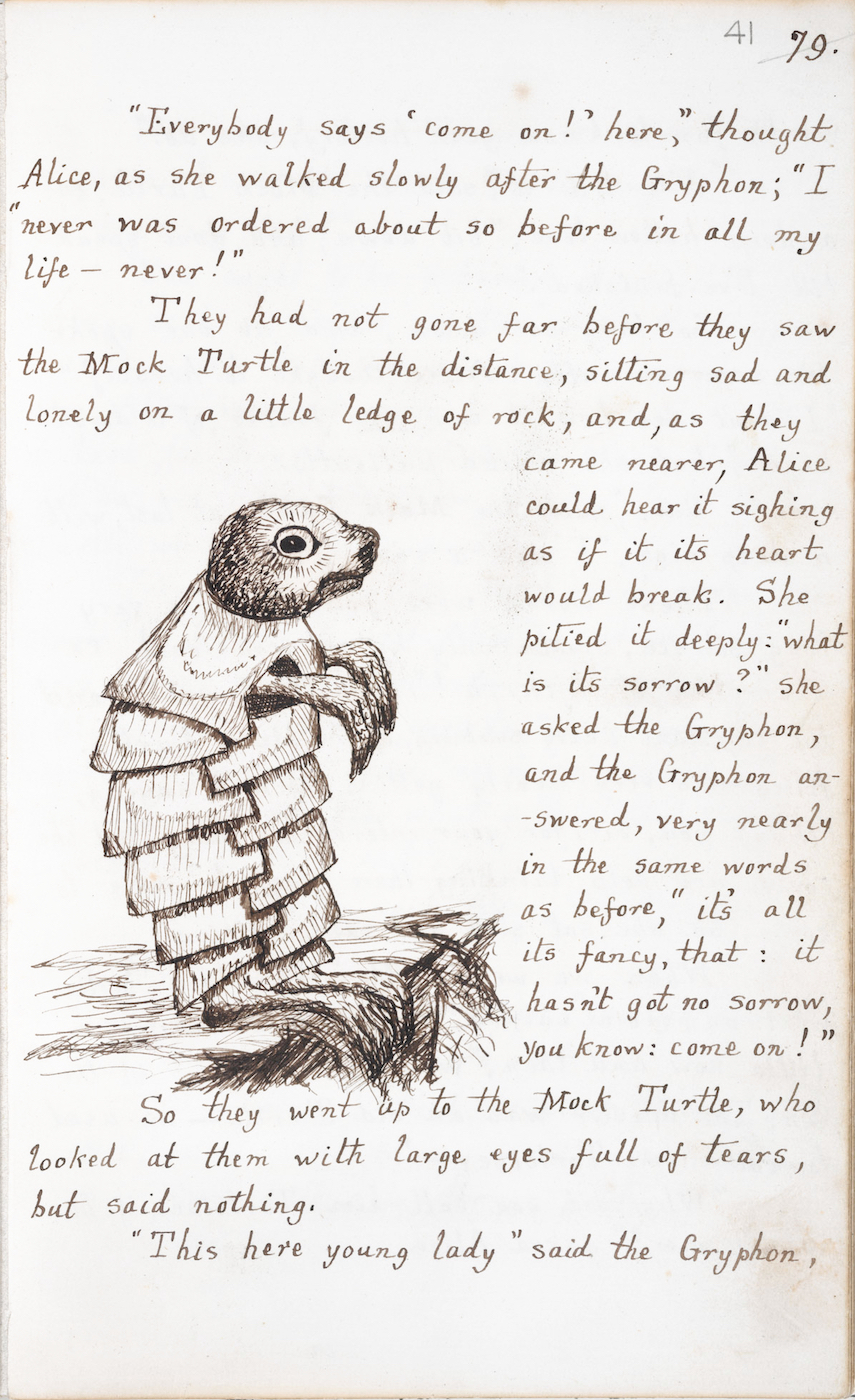 41 79.
"Everybody says 'come on!' here," thought
Alice, as she walked slowly after the Gryphon; "I
"never was ordered about so before in all my
life – never!"
They had not gone far before they saw
the Mock Turtle in the distance, sitting sad and
lonely on a little ledge of rock, and, as they
came nearer, Alice
could hear it sighing
as if it its heart
would break. She
pitied it deeply: "what
is its sorrow?" she
asked the Gryphon,
and the Gryphon an-
-swered, very nearly
in the same words
as before, "it's all
its fancy, that: it
hasn't got no sorrow,
you know: come on!"
So they went up to the Mock Turtle, who
looked at them with large eyes full of tears,
but said nothing.
"This here young lady" said the Gryphon,